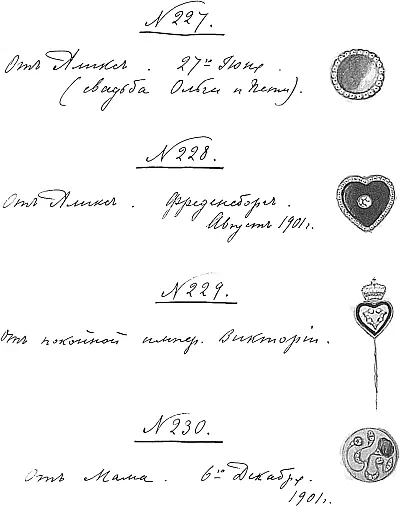 № 227.
Отъ Аликсъ. 27го Іюля.
(свадьба Ольги и Пети).
№ 228.
Отъ Аликсъ. Фреденсборгъ.
Августъ 1901 г.
№ 229.
Отъ покойной импер. Викторіи.
№ 230.
Отъ Мама. 6го Декабря.
1901 г.